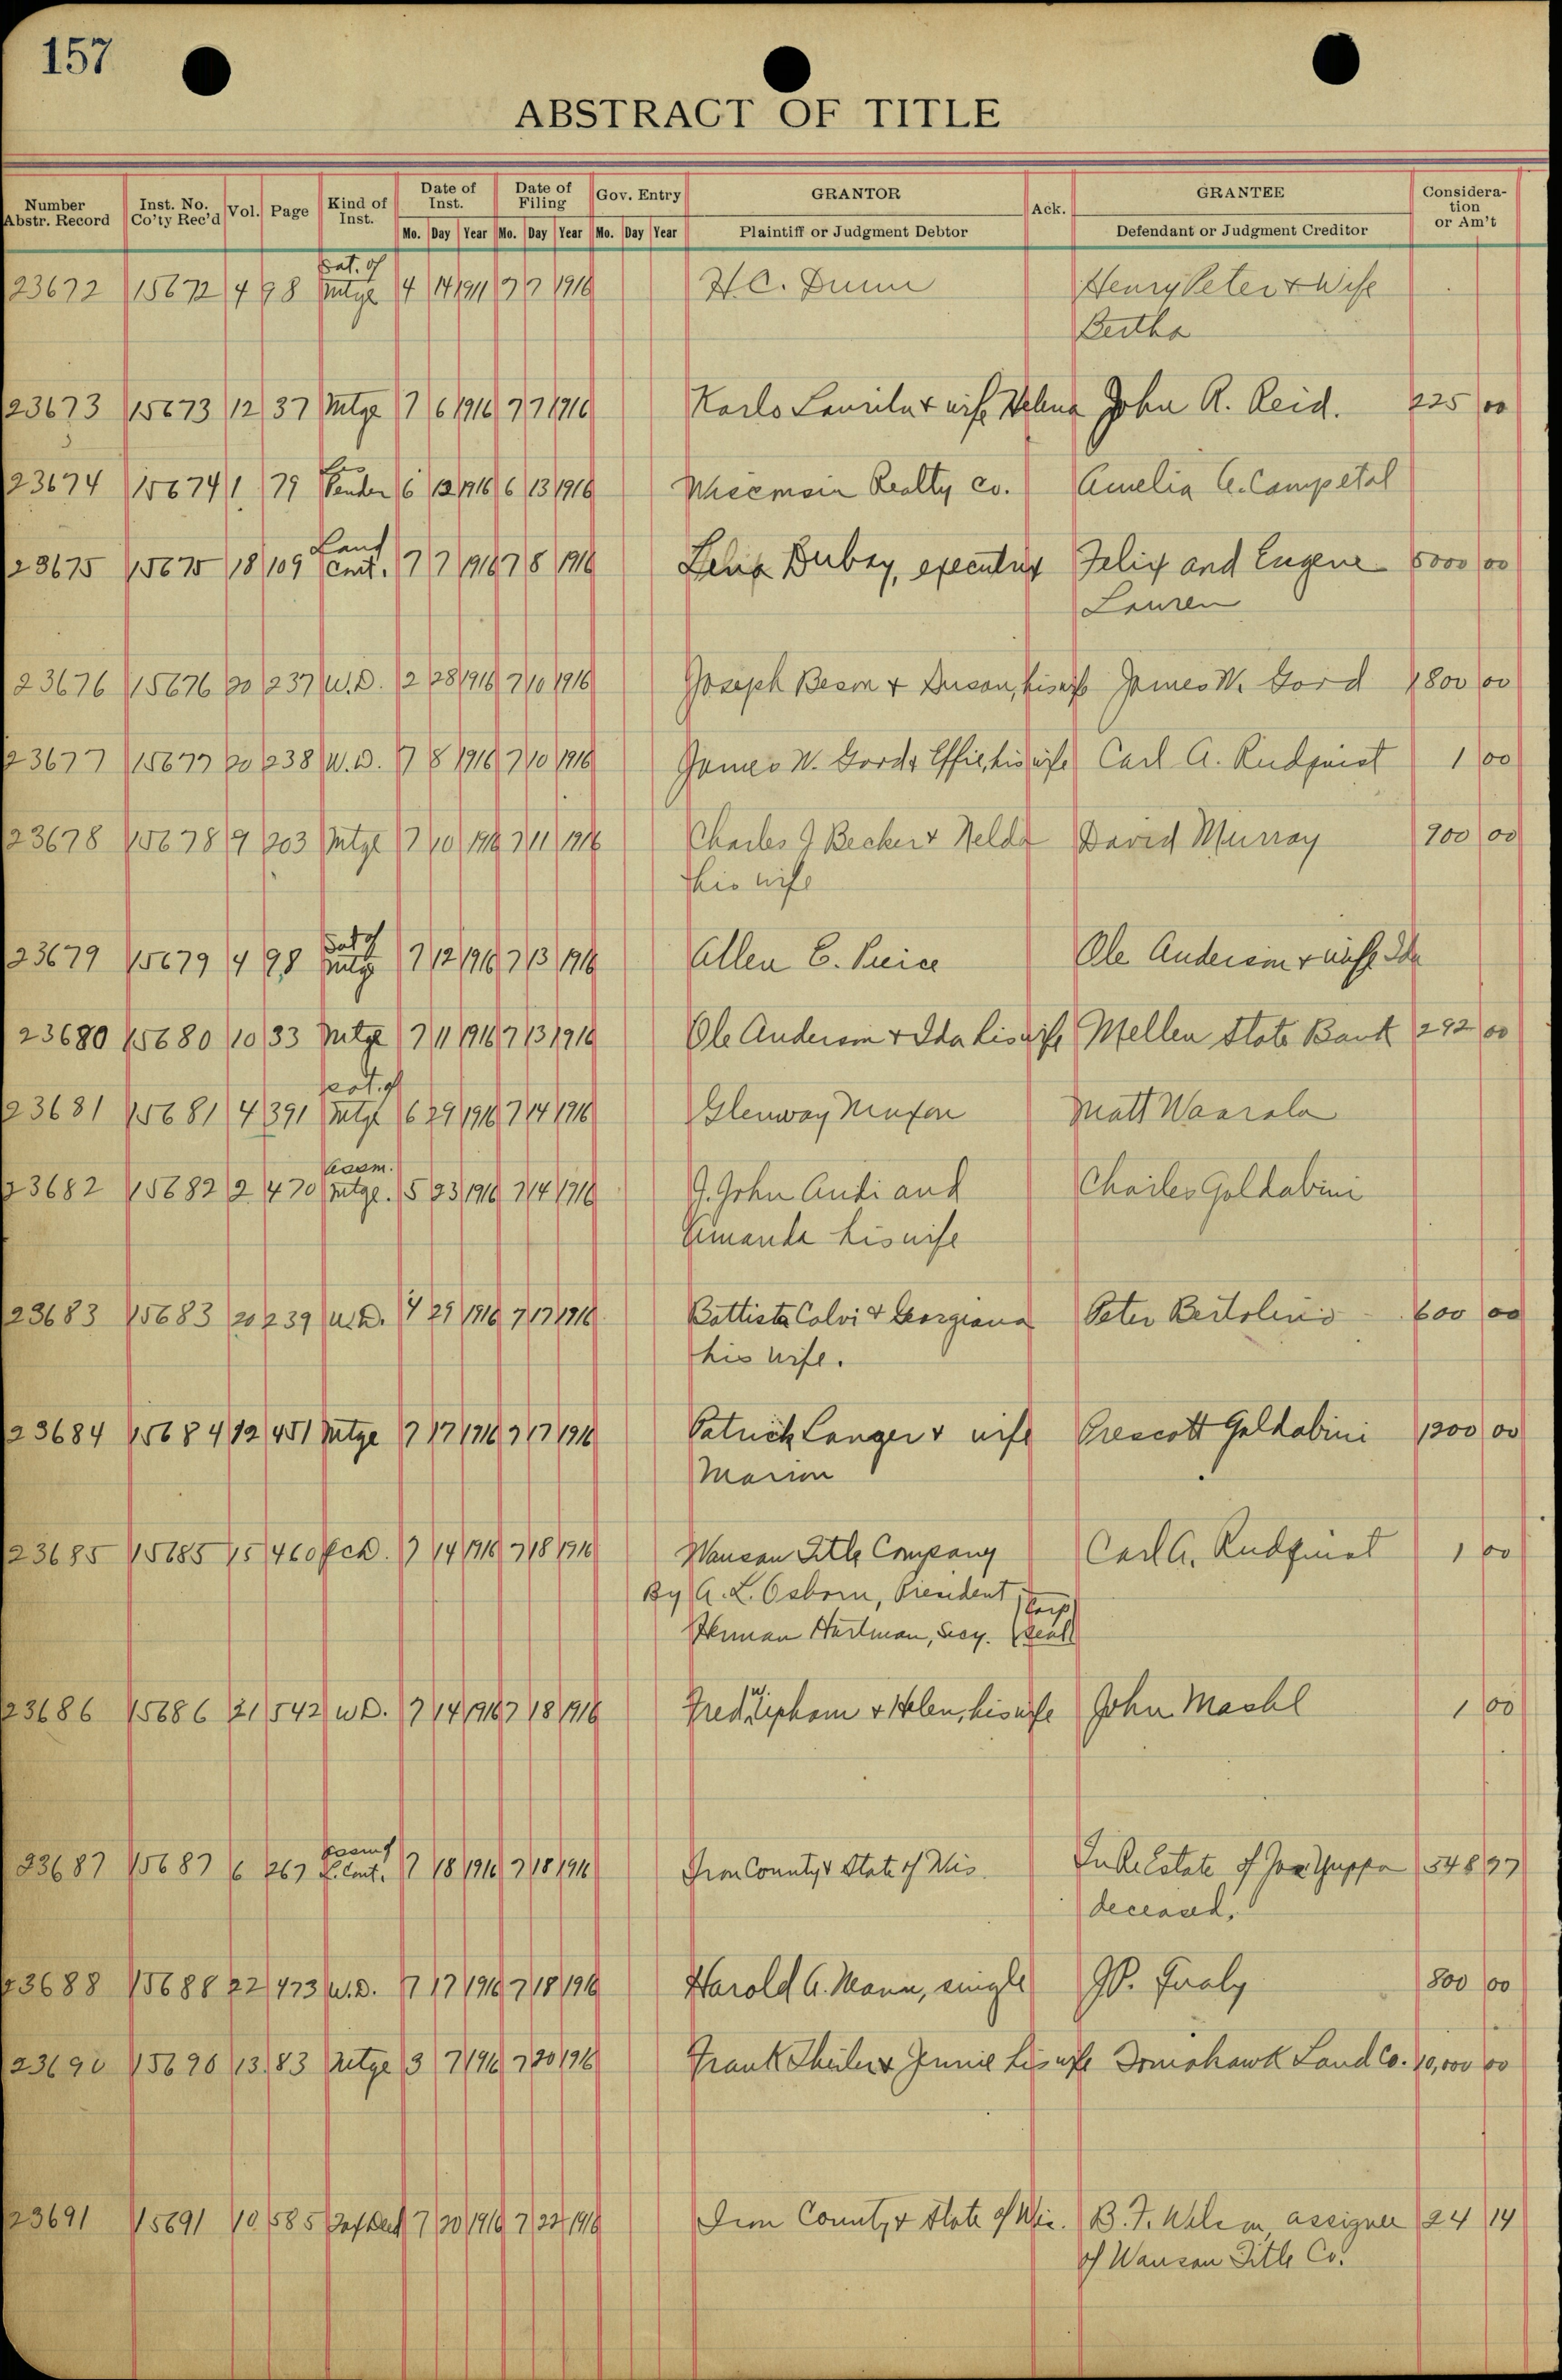 157
ABSTRACT OF TITLE
Number Abstr. Record Inst. No. Co'ty Rec'd Vol. Page Kind of Inst. Date of Inst. Date of Filing Gov. Entry GRANTOR Ack. GRANTEE Consideration or Am't
Mo. Day Year Mo. Day Year Mo. Day Year Plaintiff or Judgment Debtor Defendant or Judgment Creditor
23672 15672 4 98 Sat. of Mtge 4 14 1911 7 7 1916 H.C. Dunn Henry Peter & Wife
Bertha
23673 15673 12 37 Mtge 7 6 1916 7 7 1916 Karlo & wife John R. Reid. 225 00
23674 15674 1 79 Lis Penden 6 12 1916 6 13 1916 Realty Co. Amelia
23675 15675 18 109 Land Cont. 7 7 1916 7 8 1916 Dubay, executrix Felix and Eugene 5000 00
Lauren
23676 15676 20 237 W.D. 2 28 1916 7 10 1916 Joseph & Susan, his wife James W. Gord 1800 00
23677 15677 20 238 W.D. 7 8 1916 7 10 1916 James W. Gord & Effie, his wife Carl A. Rudquist 1 00
23678 15678 9 203 Mtge 7 10 1916 7 11 1916 Charles J Becker & Nelda David Murray 900 00
his wife
23679 15679 4 98 Sat of Mtge 7 12 1916 7 13 1916 Allen C. Peirce Ole Anderson & wife Ida
23680 15680 10 33 Mtge 7 11 1916 7 13 1916 Ole Anderson & Ida his wife Mellen State Bank 292 00
23681 15681 4 391 Sat. of Mtge 6 29 1916 7 14 1916 Glenway Maxon Matt Waarala
23682 15682 2 470 Assm. Mtge. 5 23 1916 7 14 1916 J. John and Charles Goldabini
Amanda his wife
23683 15683 20 239 W.D. 4 29 1916 7 17 1916 Battista Calvi & Georgiana Peter Bertolino 600 00
his wife.
23684 15684 12 451 Mtge 7 17 1916 7 17 1916 Patrick Langer & wife Prescott Goldabini 1200 00
Marion
23685 15685 15 460 7 14 1916 7 18 1916 Wausau Title Company Carl A. Rudquist 1 00
By A. L. Osborn, President Corp
Herman Hartman, Secy. Seal
23686 15686 21 542 W.D. 7 14 1916 7 18 1916 Fred W. Upham & Helen, his wife John Mashl 1 00
23687 15687 6 267 Assmt L. Cont. 7 18 1916 7 18 1916 Iron County & State of Wis In Re Estate of 548 97
deceased.
23688 15688 22 473 W.D. 7 17 1916 7 18 1916 Harold A. Mann, single 800 00
23690 15690 13 83 Mtge 3 7 1916 7 20 1916 Frank Theiler & Jennie his wife Tomahawk Land Co. 10,000 00
23691 15691 10 585 Tax Deed 7 20 1916 7 22 1916 Iron County & State of Wis. B. F. Wilson, assignee 24 14
of Wausau Title Co.